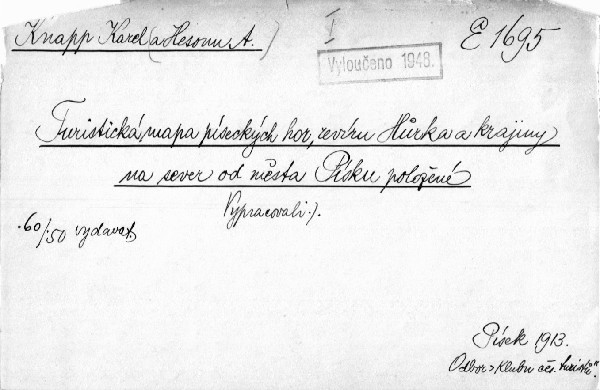 Knapp Karel (a Hesoun A.)
I
E 1695
Vyloučeno 1948.
Turistická mapa píseckých hor, revíru Hůrka a krajiny
na sever od města Písku položené
Vypracovali:).
.60/:50 vydavat.
Písek 1913.
Odbor >Klubu čes. turistů".